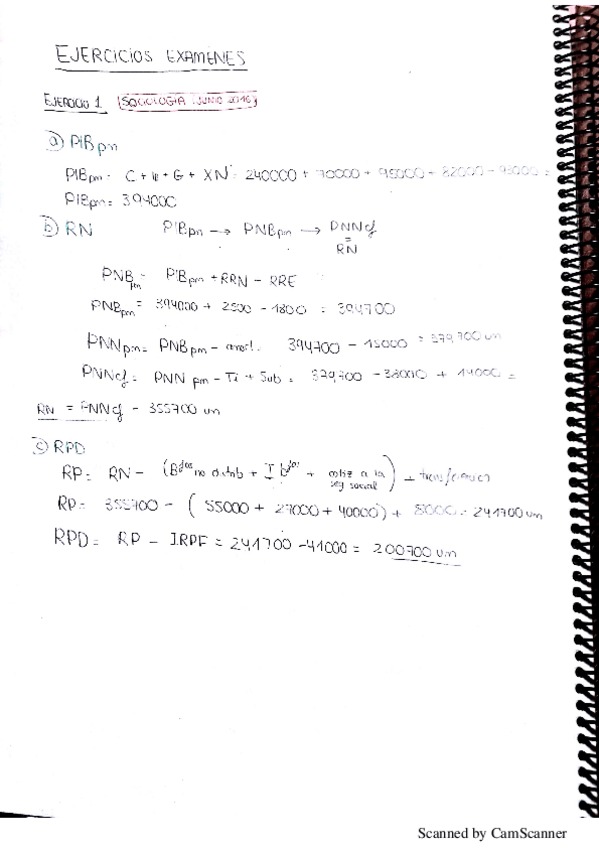 EJERCICIOS EXAMENES
EJERCICIO 1 (SOCIOLOGIA JUNIO 2016)
a) PIBpm
PIBpm = C + I + G + XN = 240000 + 70000 + 95000 + 82000 - 93000 =
PIBpm = 394000
b) RN PIBpm → PNBpm → PNNcf
=
RN
PNBpm = PIBpm + RRN - RRE
PNBpm = 394000 + 2500 - 1800 = 394700
PNNpm = PNBpm - amort. 394700 - 15000 = 379700 um
PNNcf = PNN pm - Ti + Sub = 379700 - 38000 + 14000 =
RN = PNNcf - 355700 um
c) RPD
RP = RN - (Bdos no distrib + I bdos + cotiz a la seg social) + transferencias
RP = 355700 - (55000 + 27000 + 40000) + 8000 = 241700 um
RPD = RP - IRPF = 241700 - 41000 = 200700 um
Scanned by CamScanner